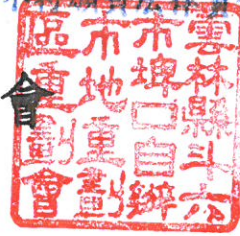 雲林縣斗六
市埤口自辦
市地重劃
區重劃會
會